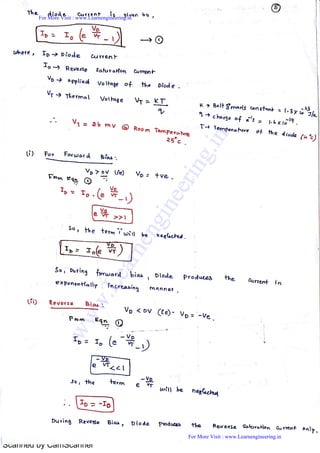 For More Visit : www.Learnengineering.in
The diode current is given by,
I_D = I_0 (e^{V_D/V_T} - 1) → ①
where, I_D → Diode current
I_0 → Reverse saturation current
V_D → applied voltage of the Diode.
V_T → Thermal voltage V_T = KT/q
K → Boltzmann's constant = 1.38 x 10^-23 J/K
q → charge of e^-'s = 1.6 x 10^-19
T → temperature of the diode (in °C)
∴ V_T = 26 mV @ Room Temperature 25°C.
(i) For Forward Bias:
V_D > 0V (ie) V_D = +ve.
From Eqn ①
I_D = I_0 . (e^{V_D/V_T} - 1)
e^{V_D/V_T} >> 1
So, the term '1' will be neglected.
I_D = I_0 (e^{V_D/V_T})
So, During forward bias, Diode produces the current in
exponentially increasing manner.
(ii) Reverse Bias:
V_D < 0V (ie) V_D = -Ve.
From Eqn ①
I_D = I_0 (e^{-V_D/V_T} - 1)
e^{-V_D/V_T} << 1
So, the term e^{-V_D/V_T} will be neglected
∴ I_D = -I_0
During Reverse Bias, Diode produces the Reverse Saturation Current only.
www.Learnengineering.in
For More Visit : www.Learnengineering.in
Scanned by CamScanner